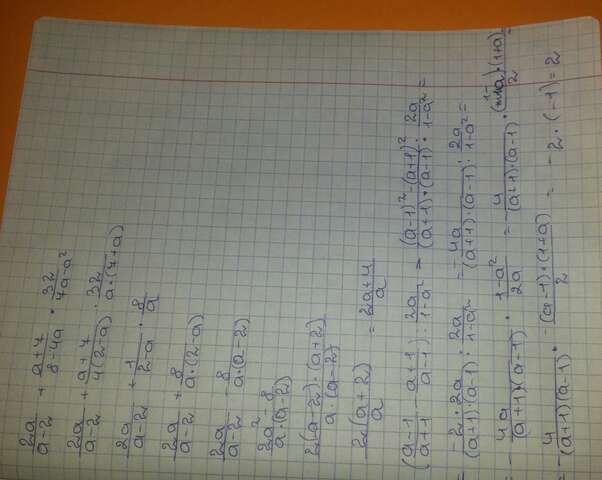 2a/(a-2) + (a+7)/(8-4a) · 32/(4a-a²)
2a/(a-2) + (a+7)/(4(2-a)) · 32/(a·(7+a))
2a/(a-2) + 1/(2-a) · 8/a
2a/(a-2) + 8/(a·(2-a))
2a/(a-2) - 8/(a·(a-2))
(2a² - 8)/(a·(a-2))
2(a-2)·(a+2)/(a·(a-2))
2(a+2)/a = (2a+4)/a
((a-1)/(a+1) - (a+1)/(a-1)) : 2a/(1-a²) = ((a-1)² - (a+1)²)/((a+1)·(a-1)) : 2a/(1-a²) =
= - (2·2a)/((a+1)(a-1)) : 2a/(1-a²) = - 4a/((a+1)·(a-1)) : 2a/(1-a²) =
= - 4a/((a+1)·(a-1)) · (1-a²)/2a = - 4/((a+1)·(a-1)) · (1-a)·(1+a)/2 =
= - 4/((a+1)(a-1)) · (a-1)·(1+a)/2 = -2·(-1) = 2